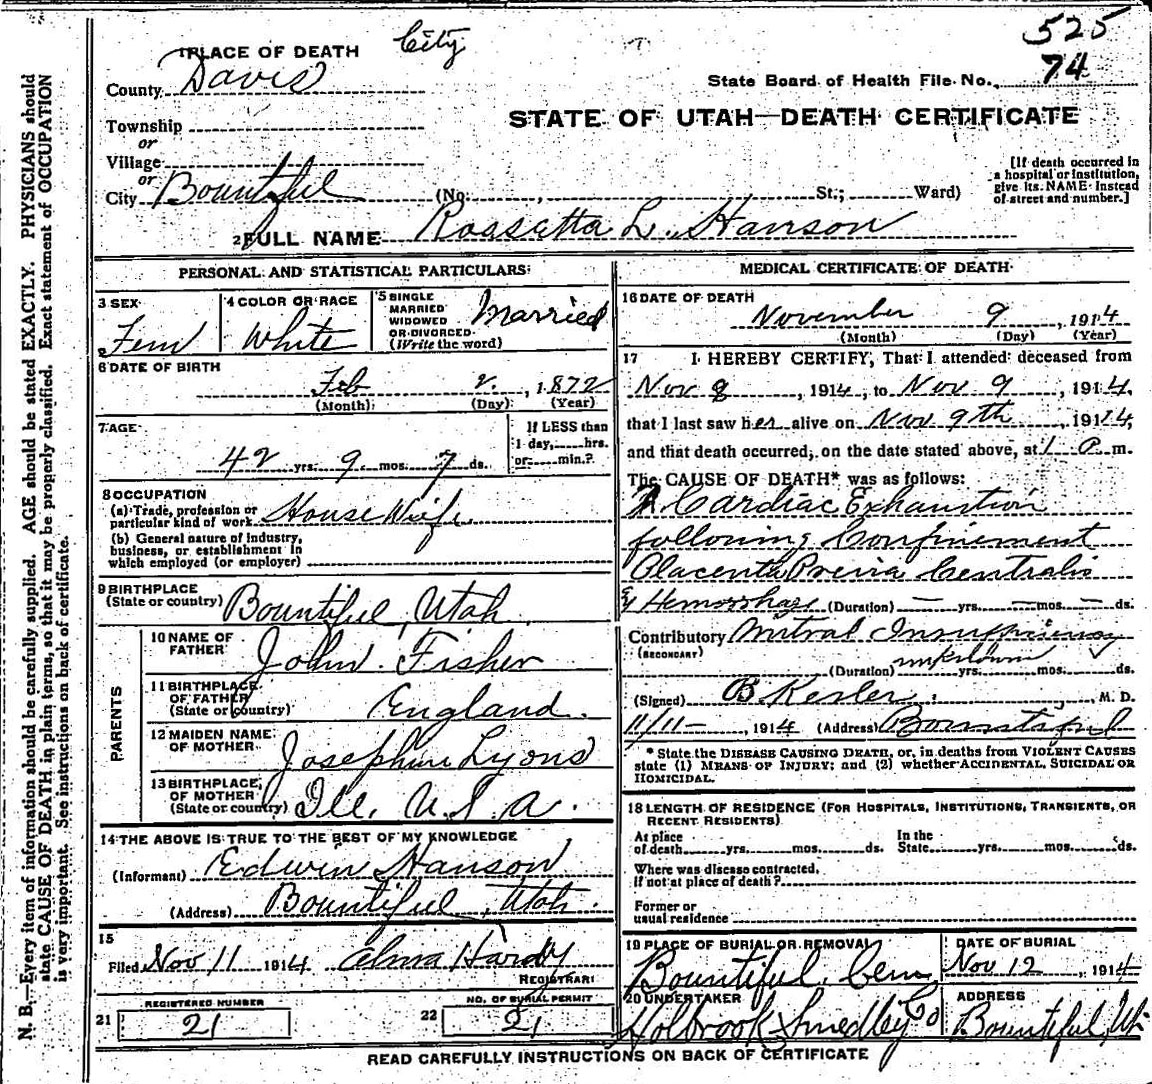 525
City
1 PLACE OF DEATH
74
County Davis
State Board of Health File No.
Township
STATE OF UTAH—DEATH CERTIFICATE
or
Village
or
City Bountiful (No. , St.; Ward)
[If death occurred in
a hospital or institution,
give its NAME instead
of street and number.]
2 FULL NAME Rossetta L. Hanson
PERSONAL AND STATISTICAL PARTICULARS
3 SEX
Fem
4 COLOR OR RACE
White
5 SINGLE
MARRIED
WIDOWED
OR DIVORCED
(Write the word)
Married
6 DATE OF BIRTH
Feb 2. , 1872
(Month) (Day) (Year)
7 AGE
42 yrs. 9 mos. 7 ds.
If LESS than
1 day, hrs.
or min.?
8 OCCUPATION
(a) Trade, profession or
particular kind of work House Wife
(b) General nature of industry,
business, or establishment in
which employed (or employer)
9 BIRTHPLACE
(State or country) Bountiful, Utah
PARENTS
10 NAME OF
FATHER John Fisher
11 BIRTHPLACE
OF FATHER
(State or country) England.
12 MAIDEN NAME
OF MOTHER Josephine Lyons
13 BIRTHPLACE
OF MOTHER
(State or country) Ill. U.S.A.
14 THE ABOVE IS TRUE TO THE BEST OF MY KNOWLEDGE
(Informant) Edwin Hanson
(Address) Bountiful, Utah.
15
Filed Nov 11 1914 Alma Hardy
REGISTRAR
REGISTERED NUMBER
21 21
NO. OF BURIAL PERMIT
22 21
MEDICAL CERTIFICATE OF DEATH
16 DATE OF DEATH
November 9 , 1914
(Month) (Day) (Year)
17 I HEREBY CERTIFY, That I attended deceased from
Nov 8 , 1914, to Nov 9 , 1914,
that I last saw her alive on Nov 9th , 1914,
and that death occurred, on the date stated above, at 1 P. m.
The CAUSE OF DEATH* was as follows:
Cardiac Exhaustion
following Confinement
Placenta Previa Centralis
& Hemorrhage (Duration) — yrs. — mos. — ds.
Contributory Mitral Insufficiency
(SECONDARY)
(Duration) unknown yrs. mos. ds.
(Signed) B. Kesler , M. D.
11/11— , 1914 (Address) Bountiful
* State the DISEASE CAUSING DEATH, or, in deaths from VIOLENT CAUSES
state (1) MEANS OF INJURY; and (2) whether ACCIDENTAL, SUICIDAL OR
HOMICIDAL.
18 LENGTH OF RESIDENCE (FOR HOSPITALS, INSTITUTIONS, TRANSIENTS, OR
RECENT RESIDENTS)
At place
of death yrs. mos. ds.
In the
State yrs. mos. ds.
Where was disease contracted,
if not at place of death?
Former or
usual residence
19 PLACE OF BURIAL OR REMOVAL
Bountiful, Cem
DATE OF BURIAL
Nov 12 , 1914
20 UNDERTAKER
Holbrook Smedley Co
ADDRESS
Bountiful, Ut.
READ CAREFULLY INSTRUCTIONS ON BACK OF CERTIFICATE
N. B.—Every item of information should be carefully supplied. AGE should be stated EXACTLY. PHYSICIANS should
state CAUSE OF DEATH in plain terms, so that it may be properly classified. Exact statement of OCCUPATION
is very important. See instructions on back of certificate.